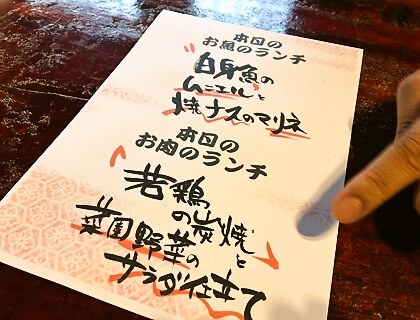 本日の
お魚のランチ
白身魚の
ムニエルと
焼ナスのマリネ
本日の
お肉のランチ
若鶏
の炭焼と
菜園野菜の
サラダ仕立て